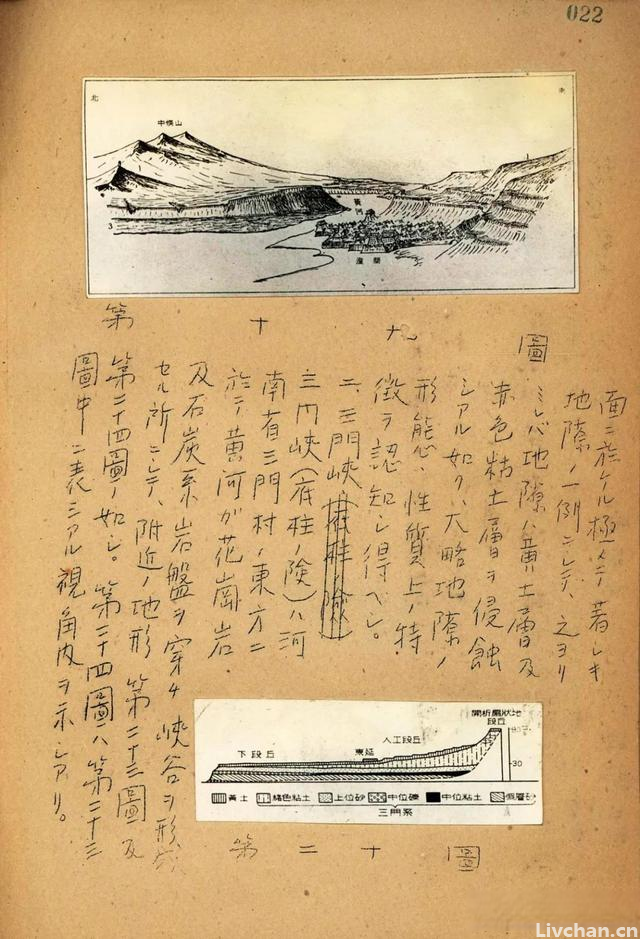 022
北
東
中條山
黄河
潼關
3
第十九圖
面ニ於ケル極メテ著シキ
地隙ノ一例ニシテ之ヨリ
ミレバ地隙ハ黄土層及
赤色粘土層ヲ侵蝕
シアル如ク、大略地隙ノ
形態、性質上ノ特
徴ヲ認知シ得ベシ。
二、三門峽(底柱ノ險)
三門峽(底柱ノ險)ハ河
南省三門村ノ東方ニ
於テ黄河ガ花崗岩
及石炭系岩盤ヲ穿チ峽谷ヲ形成
セル所ニシテ、附近ノ地形第二十三圖及
第二十四圖ノ如シ。第二十四圖ハ第二十三
圖中ニ表シアル視角内ヲ示シアリ。
開析扇狀地
段丘
人工段丘
東延
下段丘
30
黄土 緑色粘土 上位砂 中位礫 中位粘土 偽層砂
三門系
第二十圖
Livchan.cn